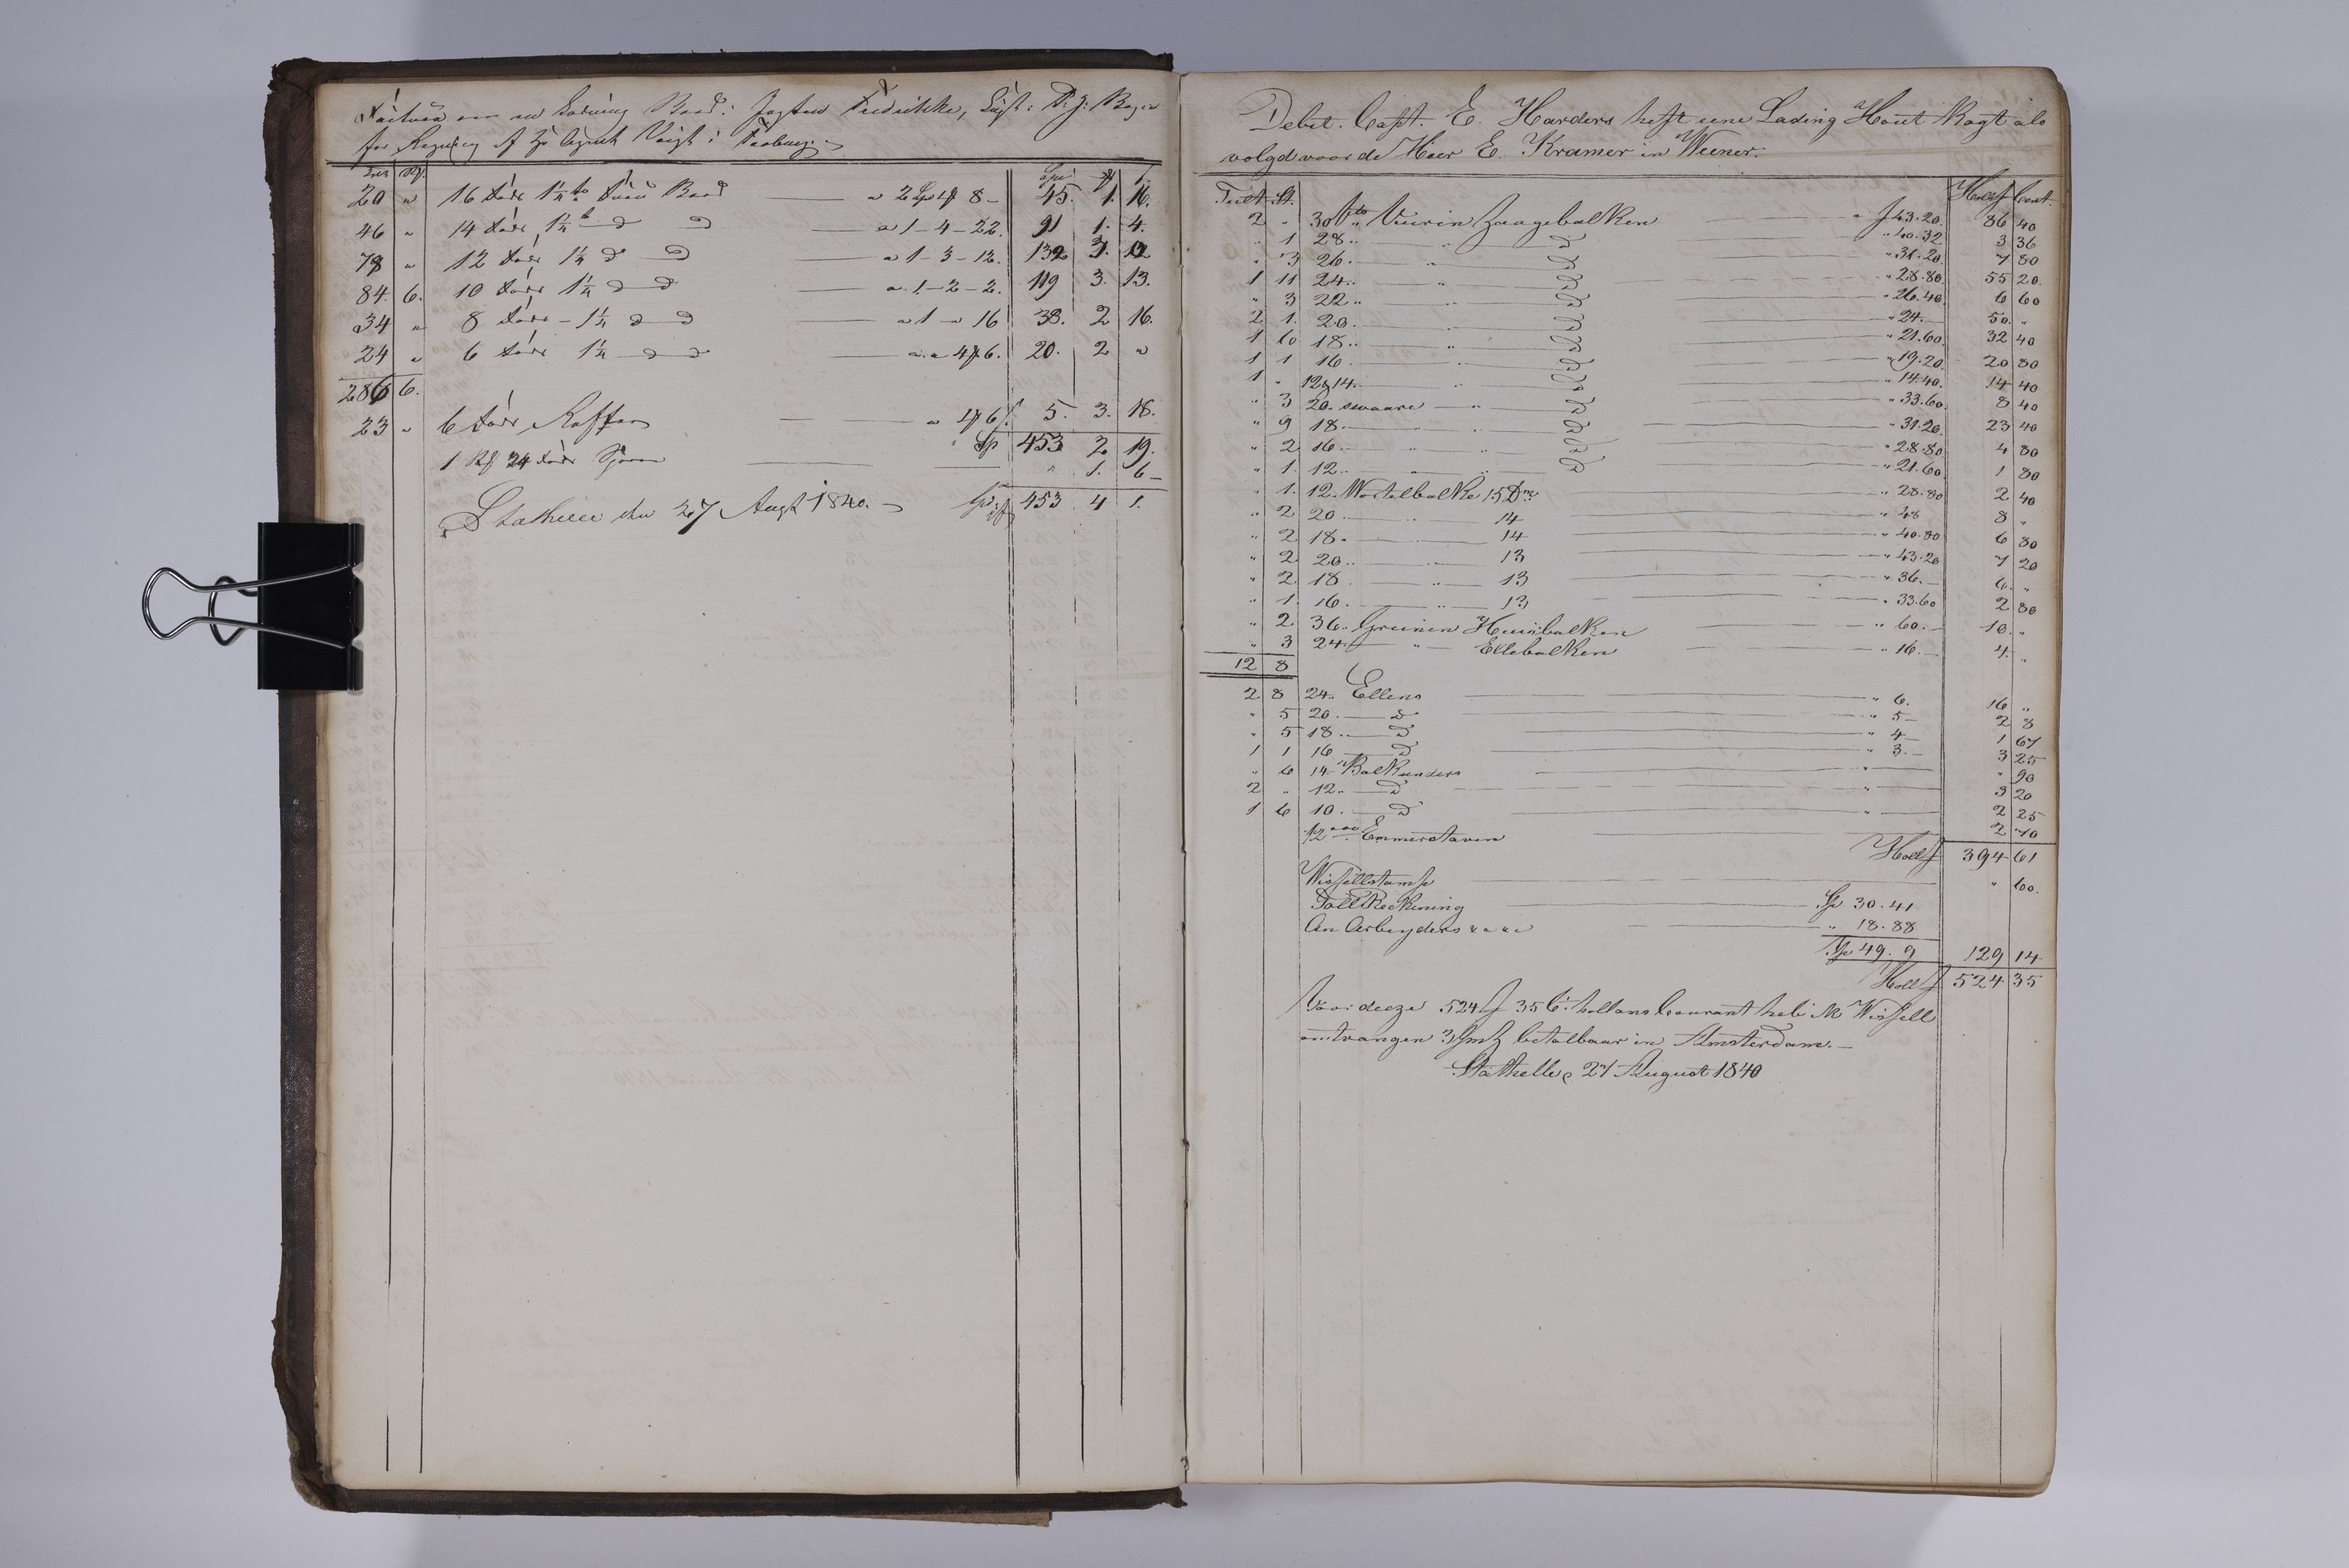 Factura over en Ladning Bord i Jagten Fredrikke, Capt: P: J: Bager
for Regning af Agent Voigt i Faaborg.
Spd. ₰ ß.
20 " 16 Fods 1¼ to Furu Bord a 2 Spd ₰ 8 - 45. 1. 16.
46 " 14 Fods 1¼ to d d a 1-4-22. 91 1. 4.
78 " 12 Fods 1¼ d d a 1-3-12. 132 3. 12
84. 6. 10 Fods 1¼ d d a. 1-2-2. 119 3. 13.
34 " 8 Fods - 1¼ d d a 1 - " 16 38. 2 16.
24 " 6 Fods 1¼ d d a. " 4 ₰ 6. 20. 2 "
286 6.
23 " 6 Fods a " ₰ 6 5. 3. 18.
Sp 453 2 19.
1 24 Fods " 1. 6-
Stathelle den 27 Augt 1840. Spd 453 4 1.
Debet. Capt. E. Harders heft eene Lading Hout Kogt als
volgd voor de Heer E. Kramer in Weener.
Tult. St. Holl f Cent.
2 " 30 fts Vuurin Zaagebalken " f 43.20. 86 40
" 1 28 " " d " 40.32 3 36
" 3 26. " d " 31.20. 7 80
1 11 24 " " d " 28.80. 55 20.
" 3 22 " " d " 26.40. 6 60
2 1. 20. " d " 24. 50. "
1 6 18 " " d " 21.60. 32 40
1 1 16 " d " 19.20. 20 80
1 " 12 & 14. " d " 14.40. 14 40
" 3 20. swaare " d " 33.60. 8 40
" 9 18. d " 31.20. 23 40
" 2 16. " " d " 28.80 4 80
" 1. 12. " " d " 21.60. 1 80
" 1. 12. Wortelbalke 15 Dm " 28.80 2 40
" 2 20 " 14 " 48 8 "
" 2 18. " 14 " 40.80 6 80
" 2 20. " 13 " 43.20 7 20
" 2 18 " 13 " 36. 6. "
" 1. 16. " 13 " 33.60 2 80
" 2 36. Greinen Huusbalken " 60. 10. "
" 3 24 " Ellebalken " 16. 4. "
12 8
2 8 24. Ellens " 6. 16 "
" 5 20. d " 5- 2 8
" 5 18. d " 4- 1 67
1 1 16 d " 3.- 3 25
" 6 14. Balkunders " " 90
2 " 12. d " 3 20
1 6 10. d " 2 25
Emmerstaven 2 70
Holl f 394 61
Wissellstamp " 60.
Tollrekening Sp 30.41
An Arbeyders " 18.88
Sp 49. 9 129 14
Holl f 524 35
Voor deeze 524 f 35 C: hollans Courant heb ik Wissell
ontvangen 3 betalbaar in Amsterdam.
Stathelle, 27 August 1840